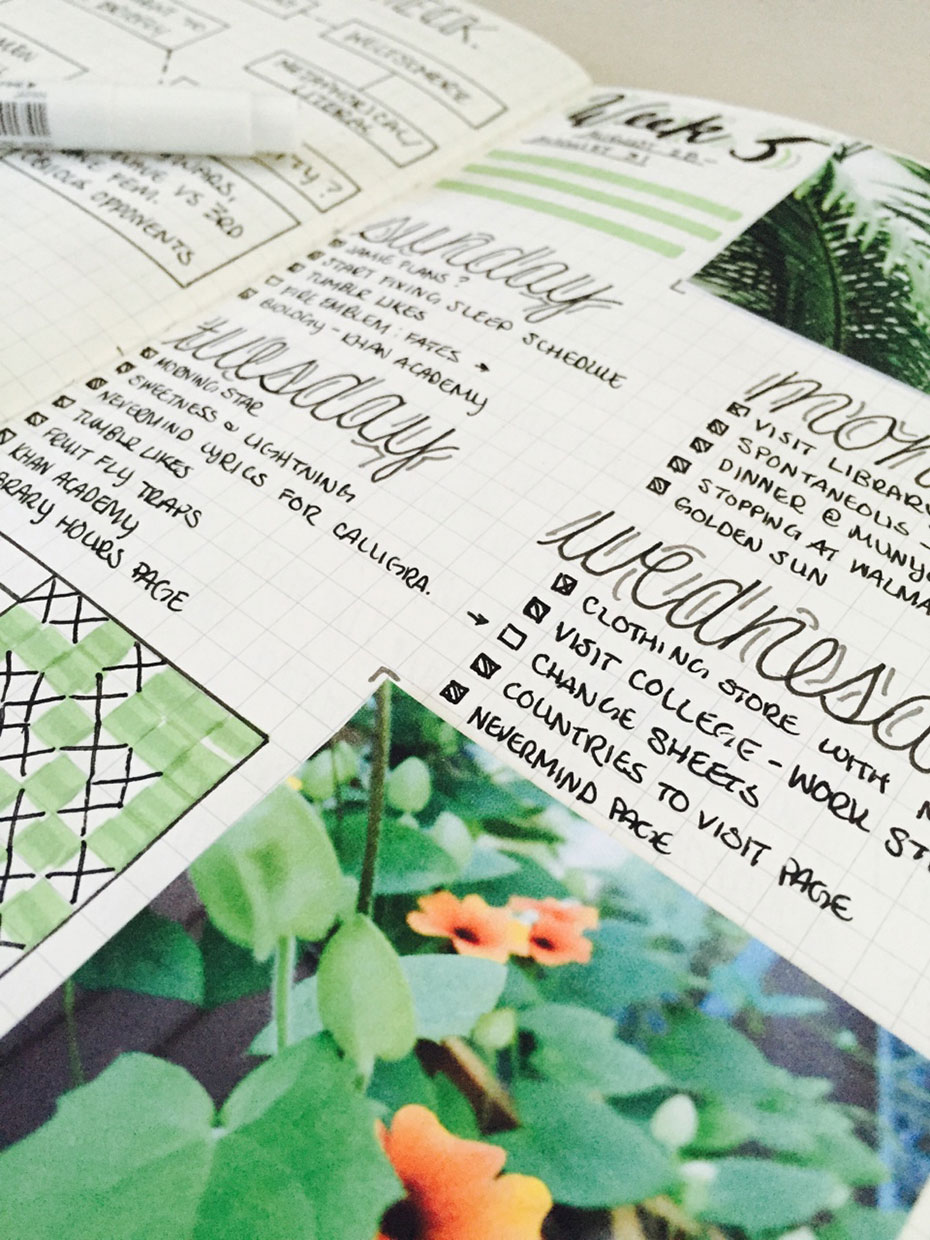 WEEK.
WHOLESOMERE
METAPHORICAL/
LITERAL
TY?
VS 3RD
FEM.
OPPONENTS
Week 5
AUGUST 28 -
AUGUST 31
sunday
JAMIE PLANS?
START FIXING SLEEP SCHEDULE
TUMBLR LIKES
FIRE EMBLEM: FATES
BIOLOGY - KHAN ACADEMY
tuesday
MORNING STAR
SWEETNESS & LIGHTNING
NEVERMIND LYRICS FOR CALLIGRA.
TUMBLR LIKES
FRUIT FLY TRAPS
KHAN ACADEMY
BRARY HOURS PAGE
mon
VISIT LIBRARY
SPONTANEOUS -
DINNER @ MUNY
STOPPING AT WALMA
GOLDEN SUN
wednesd
CLOTHING STORE WITH
VISIT COLLEGE - WORK ST
→ CHANGE SHEETS
COUNTRIES TO VISIT PAGE
NEVERMIND PAGE